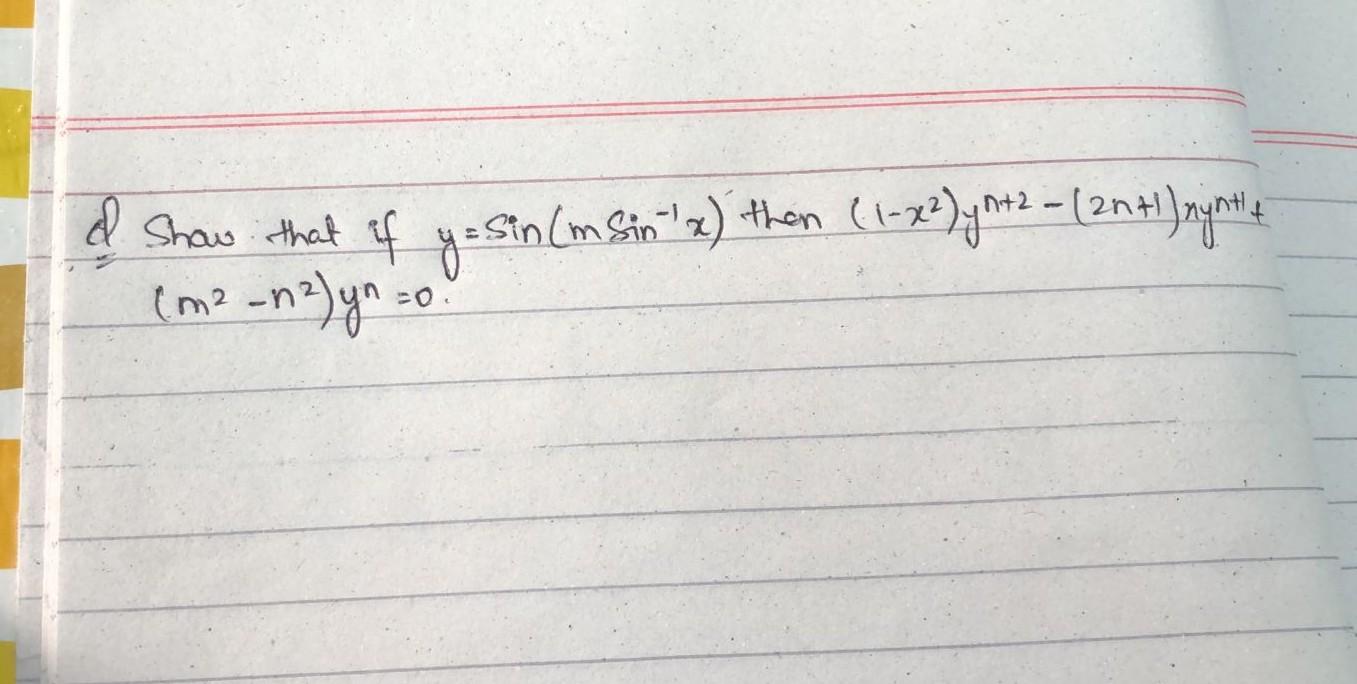 d Show that if y = Sin(m Sin⁻¹x) then (1-x²)yⁿ⁺² - (2n+1)xyⁿ⁺¹ +
(m² - n²)yⁿ = 0.